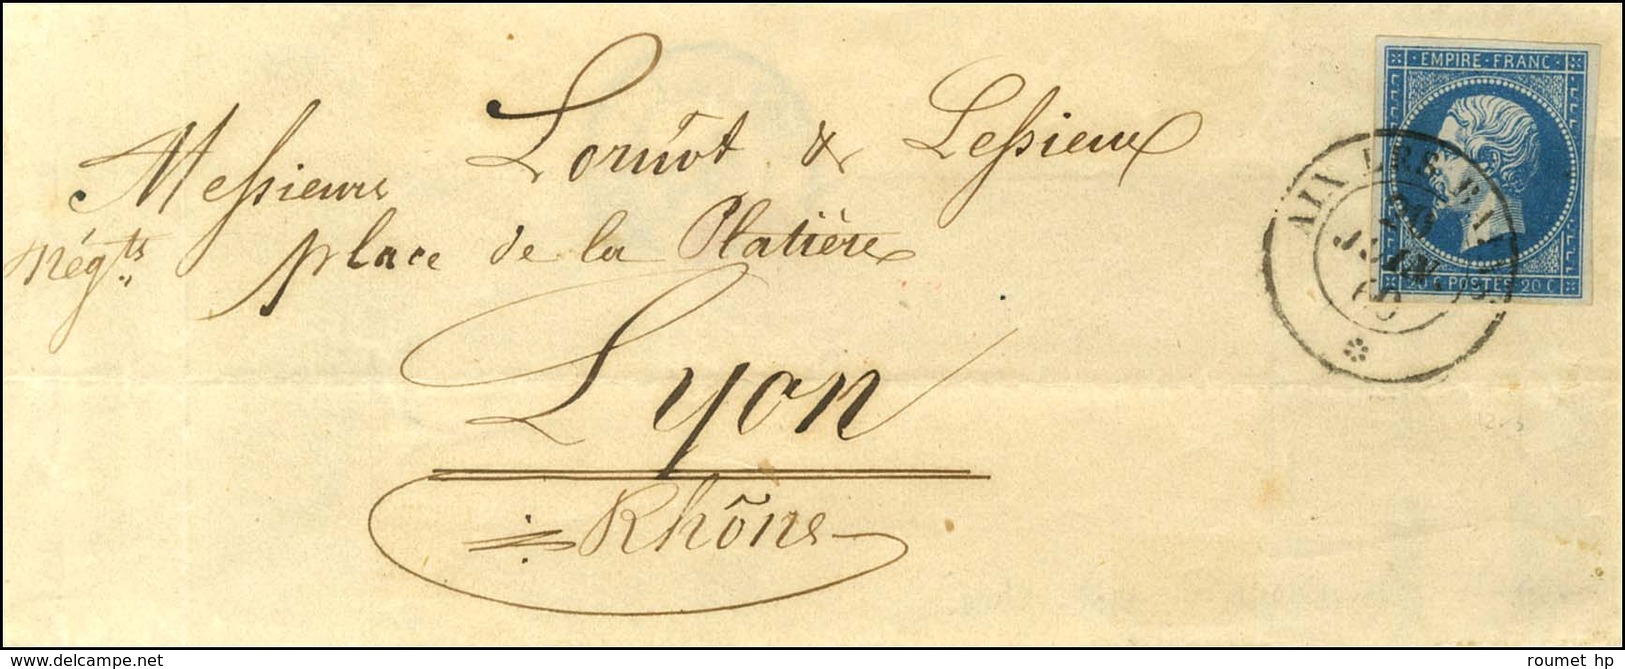 EMPIRE · FRANC ·
Messieurs Lornot & Lessieux
Négts place de la Platière
Lyon
Rhône
AIX LES BAI
20
JUIN
60
20 C POSTES 20 C
www.delcampe.net
roumet hp